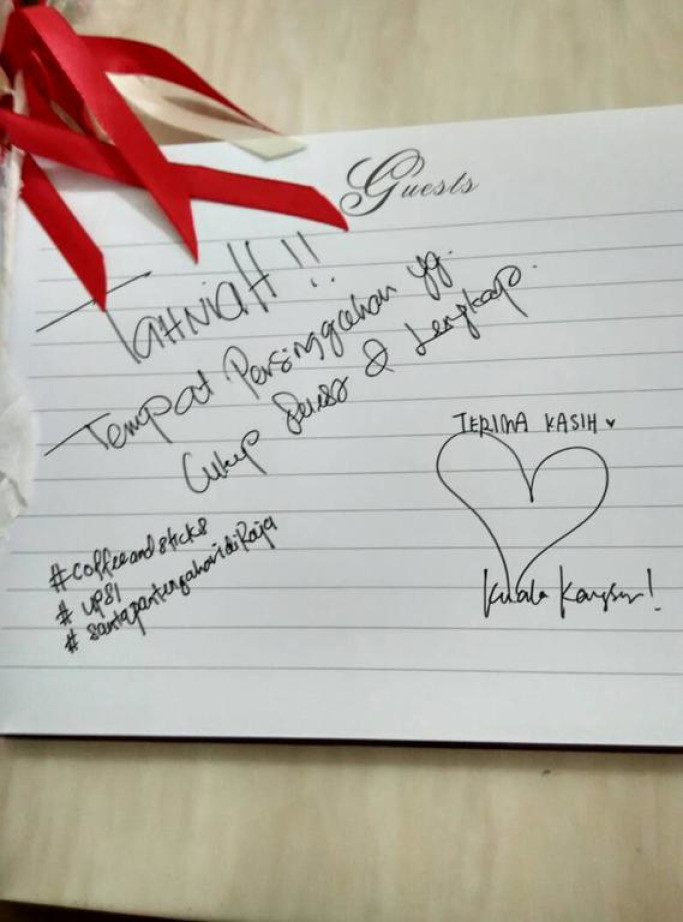 Guests
TAHNIAH!!
Tempat Persinggahan yg.
Cukup & Lengkap.
TERIMA KASIH ♥
Kuala Kangsar!
#coffeeandsticks
# UPSI
# santapantengaharidiRaja